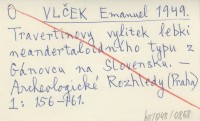 O VLČEK Emanuel 1949.
Travertinový výlitek lebky
neandertaloidního typu z
Gánovcu na Slovensku. —
Archeologické Rozhledy (Praha)
1: 156-161.